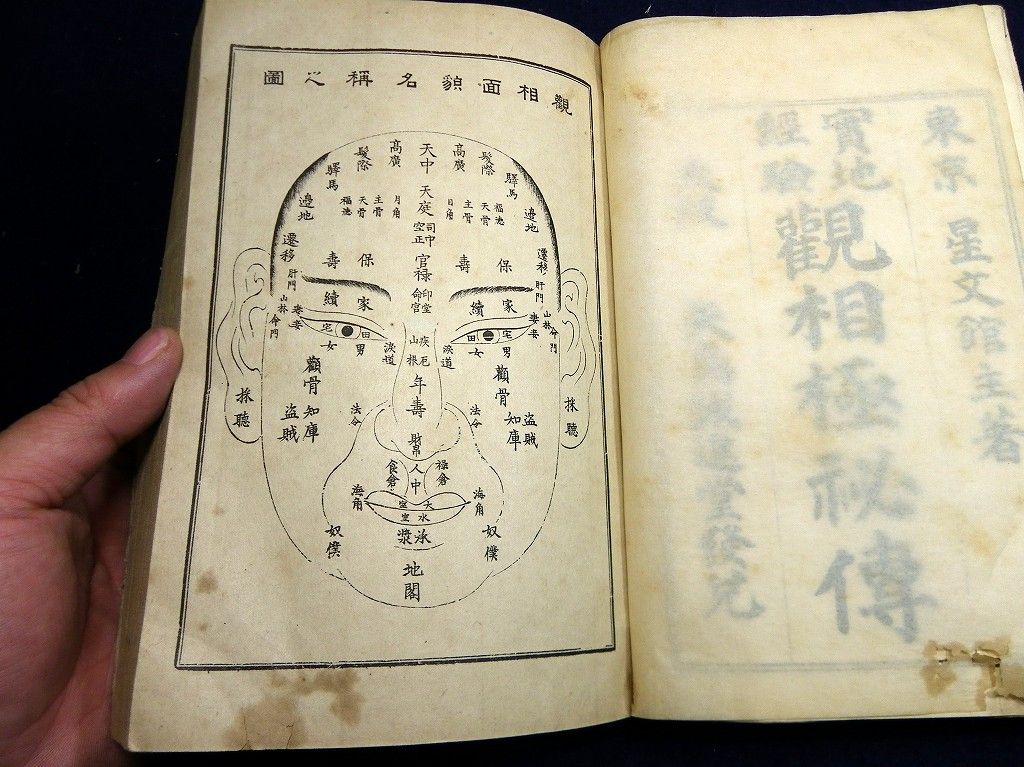 東京 星文館主者
實地
經驗
觀相極秘傳
觀相面貌名稱之圖
天中
高廣
髮際
驛馬
邊地
高廣
髮際
驛馬
邊地
天庭
日角
主骨
天骨
福德
月角
主骨
天骨
福德
司中
空正
官禄
印堂
命宮
保壽
保壽
遷移
遷移
肝門
肝門
山林
山林
命門
命門
妻妾
妻妾
家續
家續
宅
田
男
女
田
宅
男
女
淚道
淚道
疾厄
山根
年壽
顴骨
顴骨
盗賊
知庫
知庫
盗賊
採聽
採聽
法令
法令
財帛
人中
禄倉
食倉
海角
海角
大
水
承漿
奴僕
奴僕
地閣